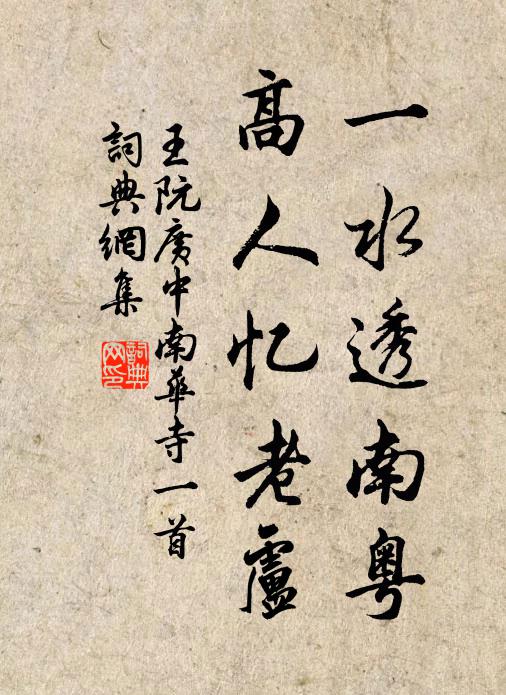 一水透南粤
高人忆老盧
王阮廣中南華寺一首
詞典網集
詞典网印